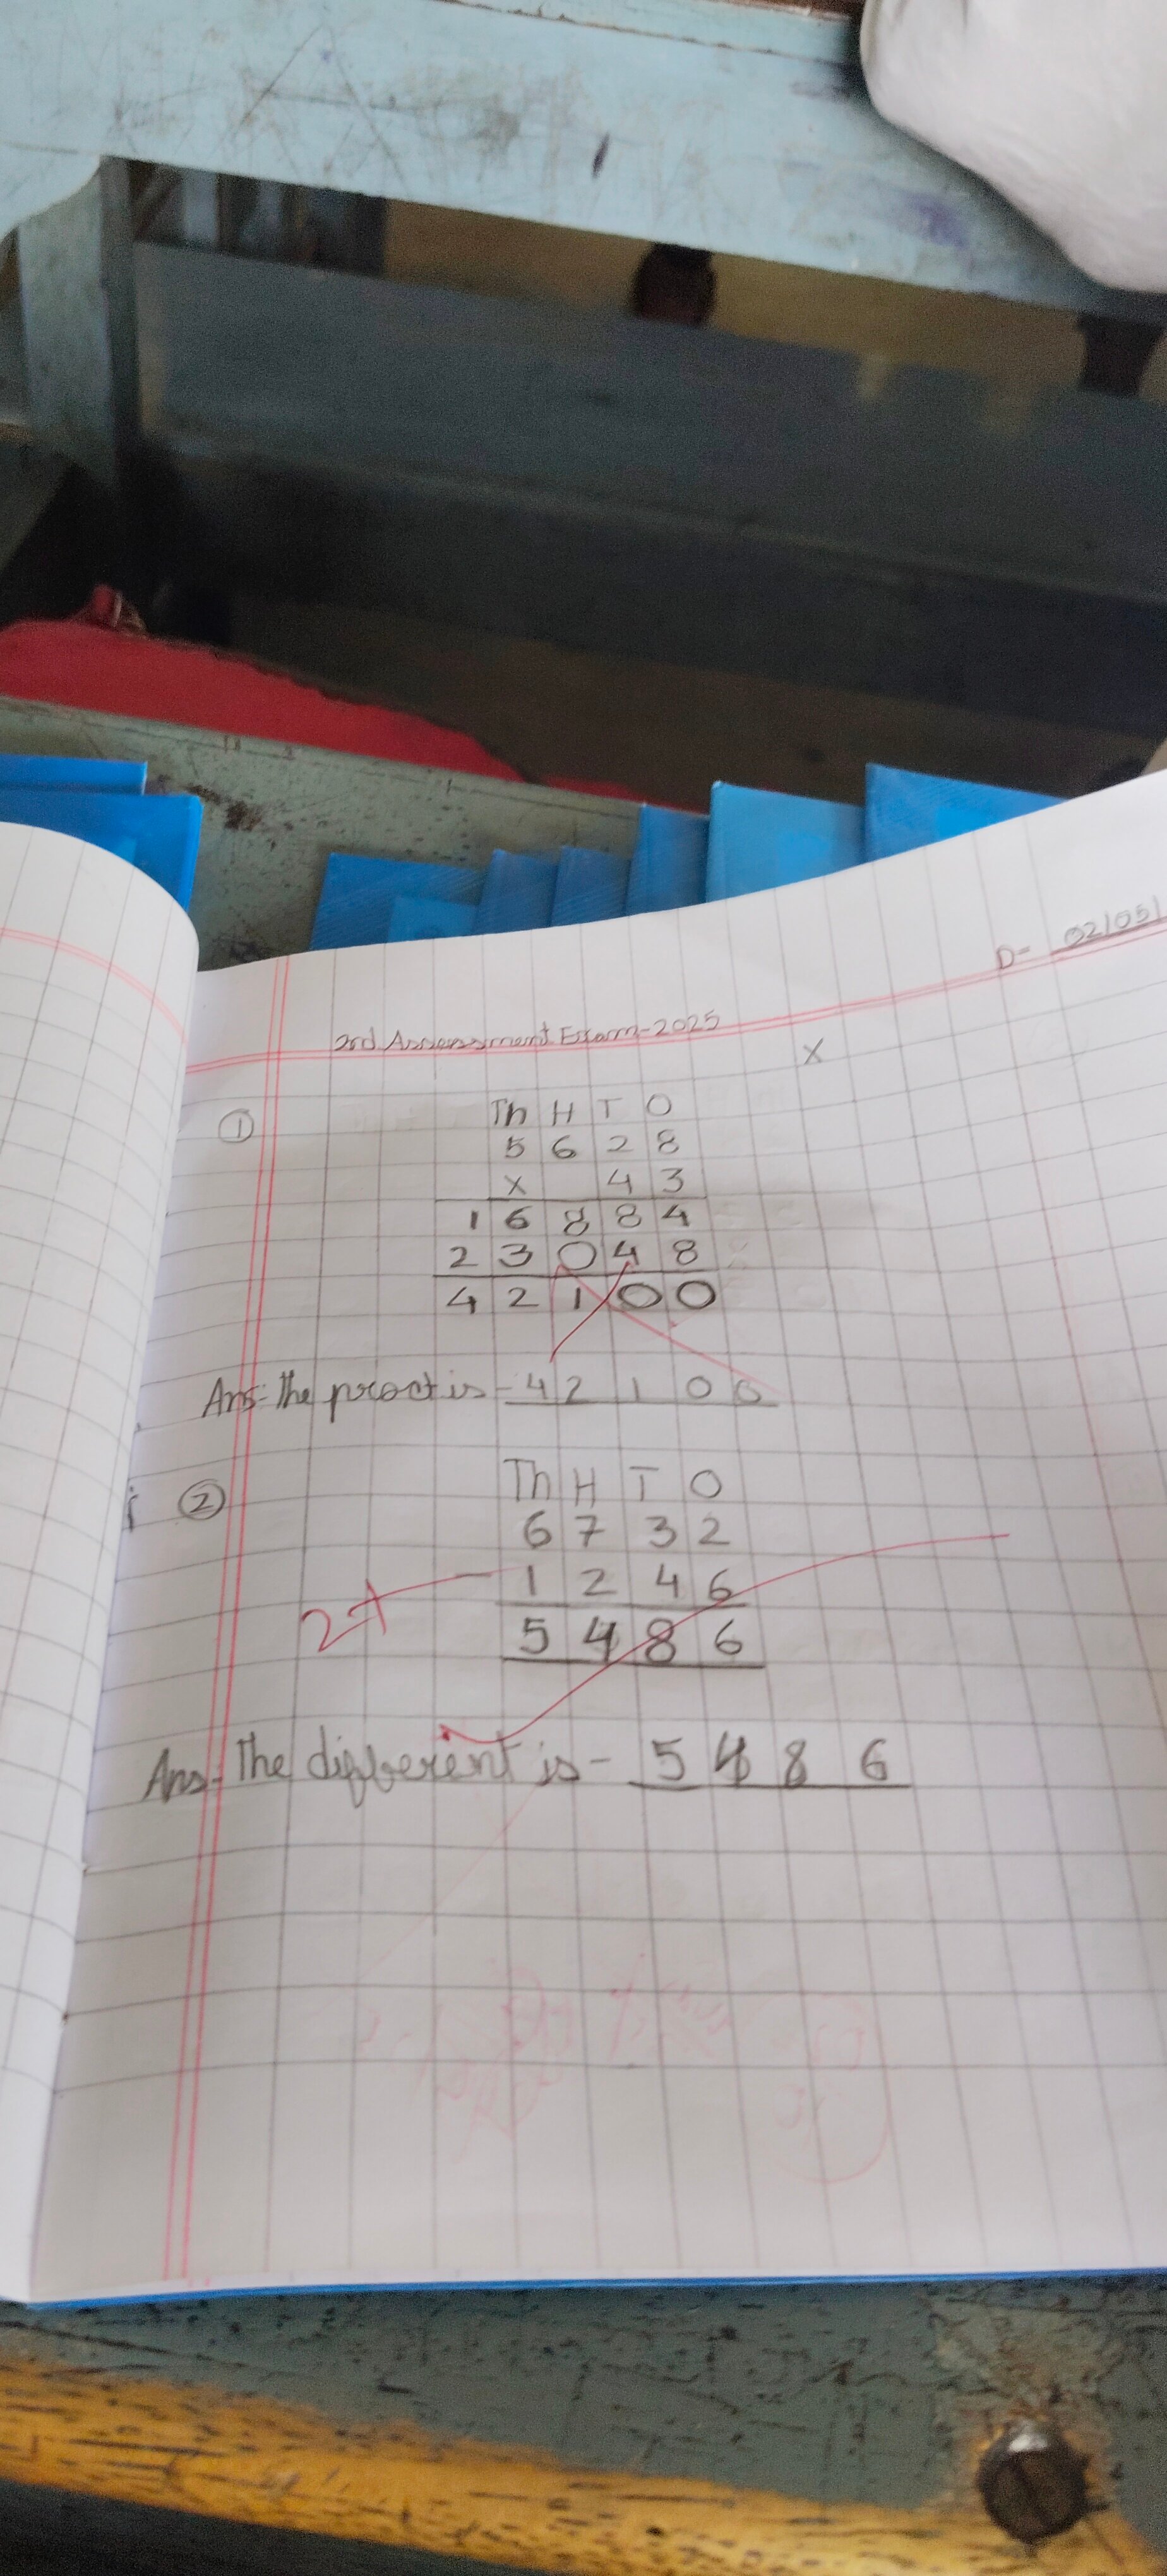 D- 02/05/
2rd Assessment Exam-2025
X
① Th H T O
5 6 2 8
X 4 3
1 6 8 8 4
2 3 0 4 8
4 2 1 0 0
Ans: the proct is - 4 2 1 0 0
② Th H T O
6 7 3 2
- 1 2 4 6
5 4 8 6
Ans: The different is - 5 4 8 6